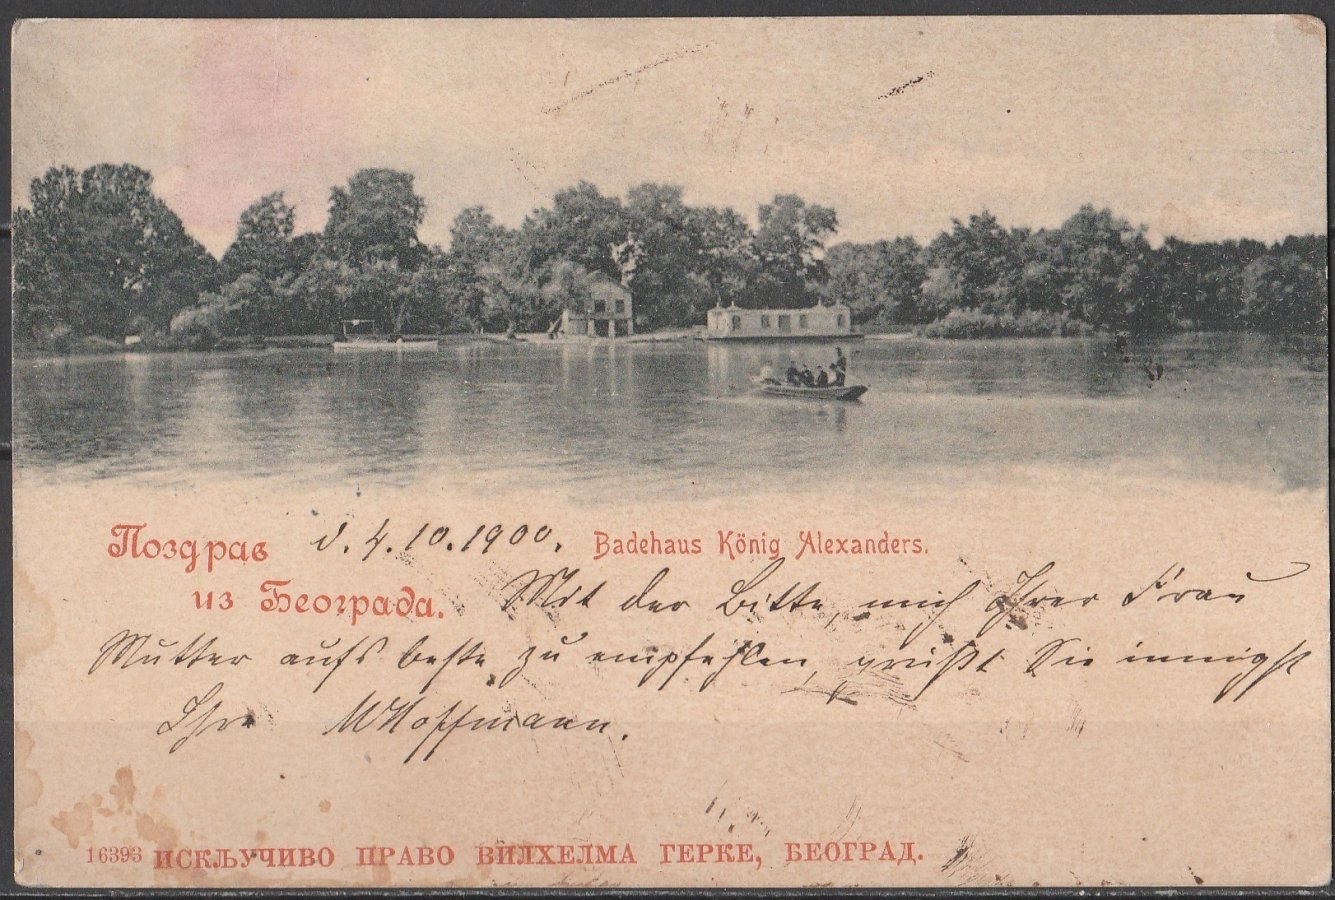 Поздрав
из Београда.
d. 4.10.1900.
Badehaus König Alexanders.
Mit der Bitte, mich Ihrer Frau
Mutter aufs beste zu empfehlen, grüßt Sie innigst
Ihre WHoffmann.
16393 ИСКЉУЧИВО ПРАВО ВИЛХЕЛМА ГЕРКЕ, БЕОГРАД.